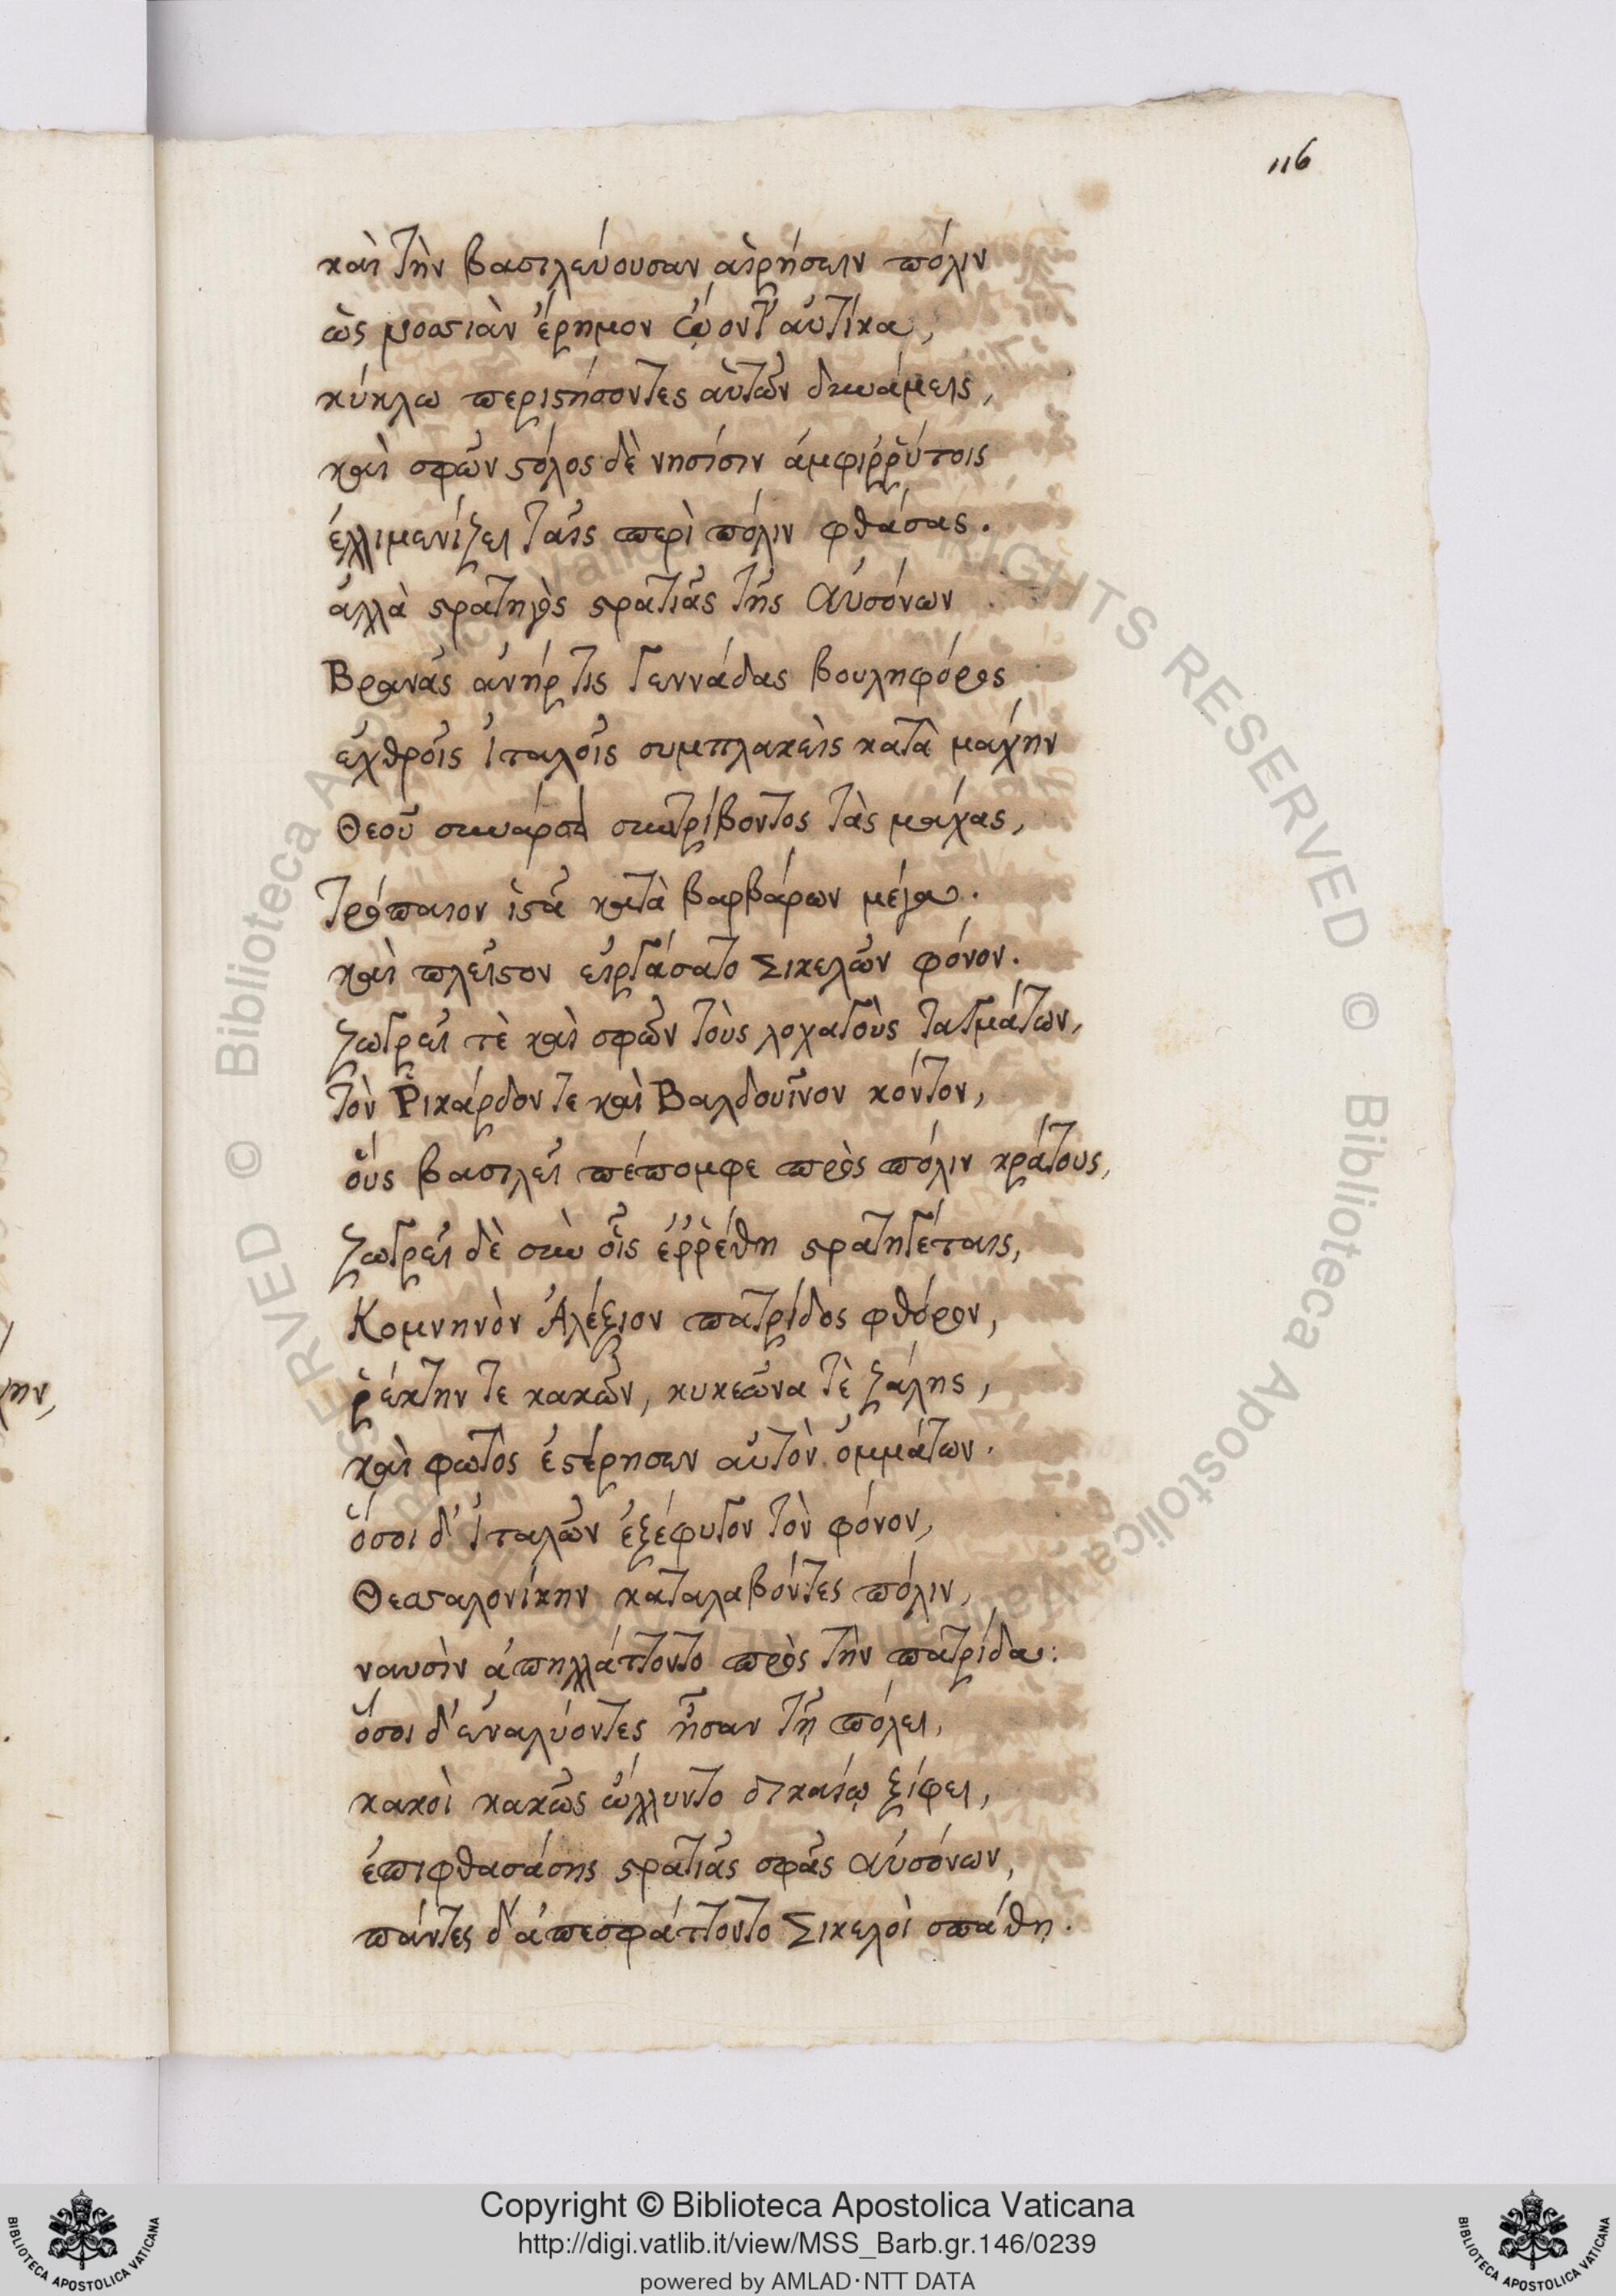 116
καὶ τὴν βασιλεύουσαν αἱρήσειν πόλιν
ὡς νοσσιὰν ἔρημον ᾤοντ' αὐτίκα,
κύκλω περιστήσοντες αὐτῶν δυνάμεις,
καὶ σφῶν στόλος δὲ νησίσιν ἀμφιῤῥύτοις
ἐλλιμενίζει ταῖς περὶ πόλιν φθάσας.
ἀλλὰ στρατηγὸς στρατιᾶς τῆς Αὐσόνων
Βρανᾶς ἀνήρ τις γεννάδας βουληφόρος
ἐχθροῖς ἰταλοῖς συμπλακεὶς κατὰ μάχην
Θεοῦ συνάρσει συντρίβοντος τὰς μάχας,
τρόπαιον ἱστᾶ κατὰ βαρβάρων μέγα.
καὶ πλεῖστον εἰργάσατο Σικελῶν φόνον.
ζωγρεῖ τὲ καὶ σφῶν τοὺς λοχαγοὺς ταγμάτων,
τὸν Ῥικάρδον τε καὶ Βαλδουῖνον κόντον,
οὓς βασιλεῖ πέπομφε πρὸς πόλιν κράτους,
ζωγρεῖ δὲ σὺν οἷς ἐῤῥέθη στρατηγέταις,
Κομνηνὸν Ἀλέξιον πατρίδος φθόρον,
ῥέκτην τε κακῶν, κυκεῶνα τὲ ζάλης,
καὶ φωτὸς ἐστέρησεν αὐτὸν ὀμμάτων.
ὅσοι δ' ἰταλῶν ἐξέφυγον τὸν φόνον,
Θεσσαλονίκην καταλαβόντες πόλιν,
ναυσὶν ἀπηλλάττοντο πρὸς τὴν πατρίδα:
ὅσοι δ' ἐναλύοντες ἦσαν τῇ πόλει,
κακοὶ κακῶς ὤλλυντο δικαίῳ ξίφει,
ἐπιφθασάσης στρατιᾶς σφᾶς αὐσόνων,
πάντες δ' ἀπεσφάττοντο Σικελοὶ σπάθῃ.
Copyright © Biblioteca Apostolica Vaticana
http://digi.vatlib.it/view/MSS_Barb.gr.146/0239
powered by AMLAD·NTT DATA